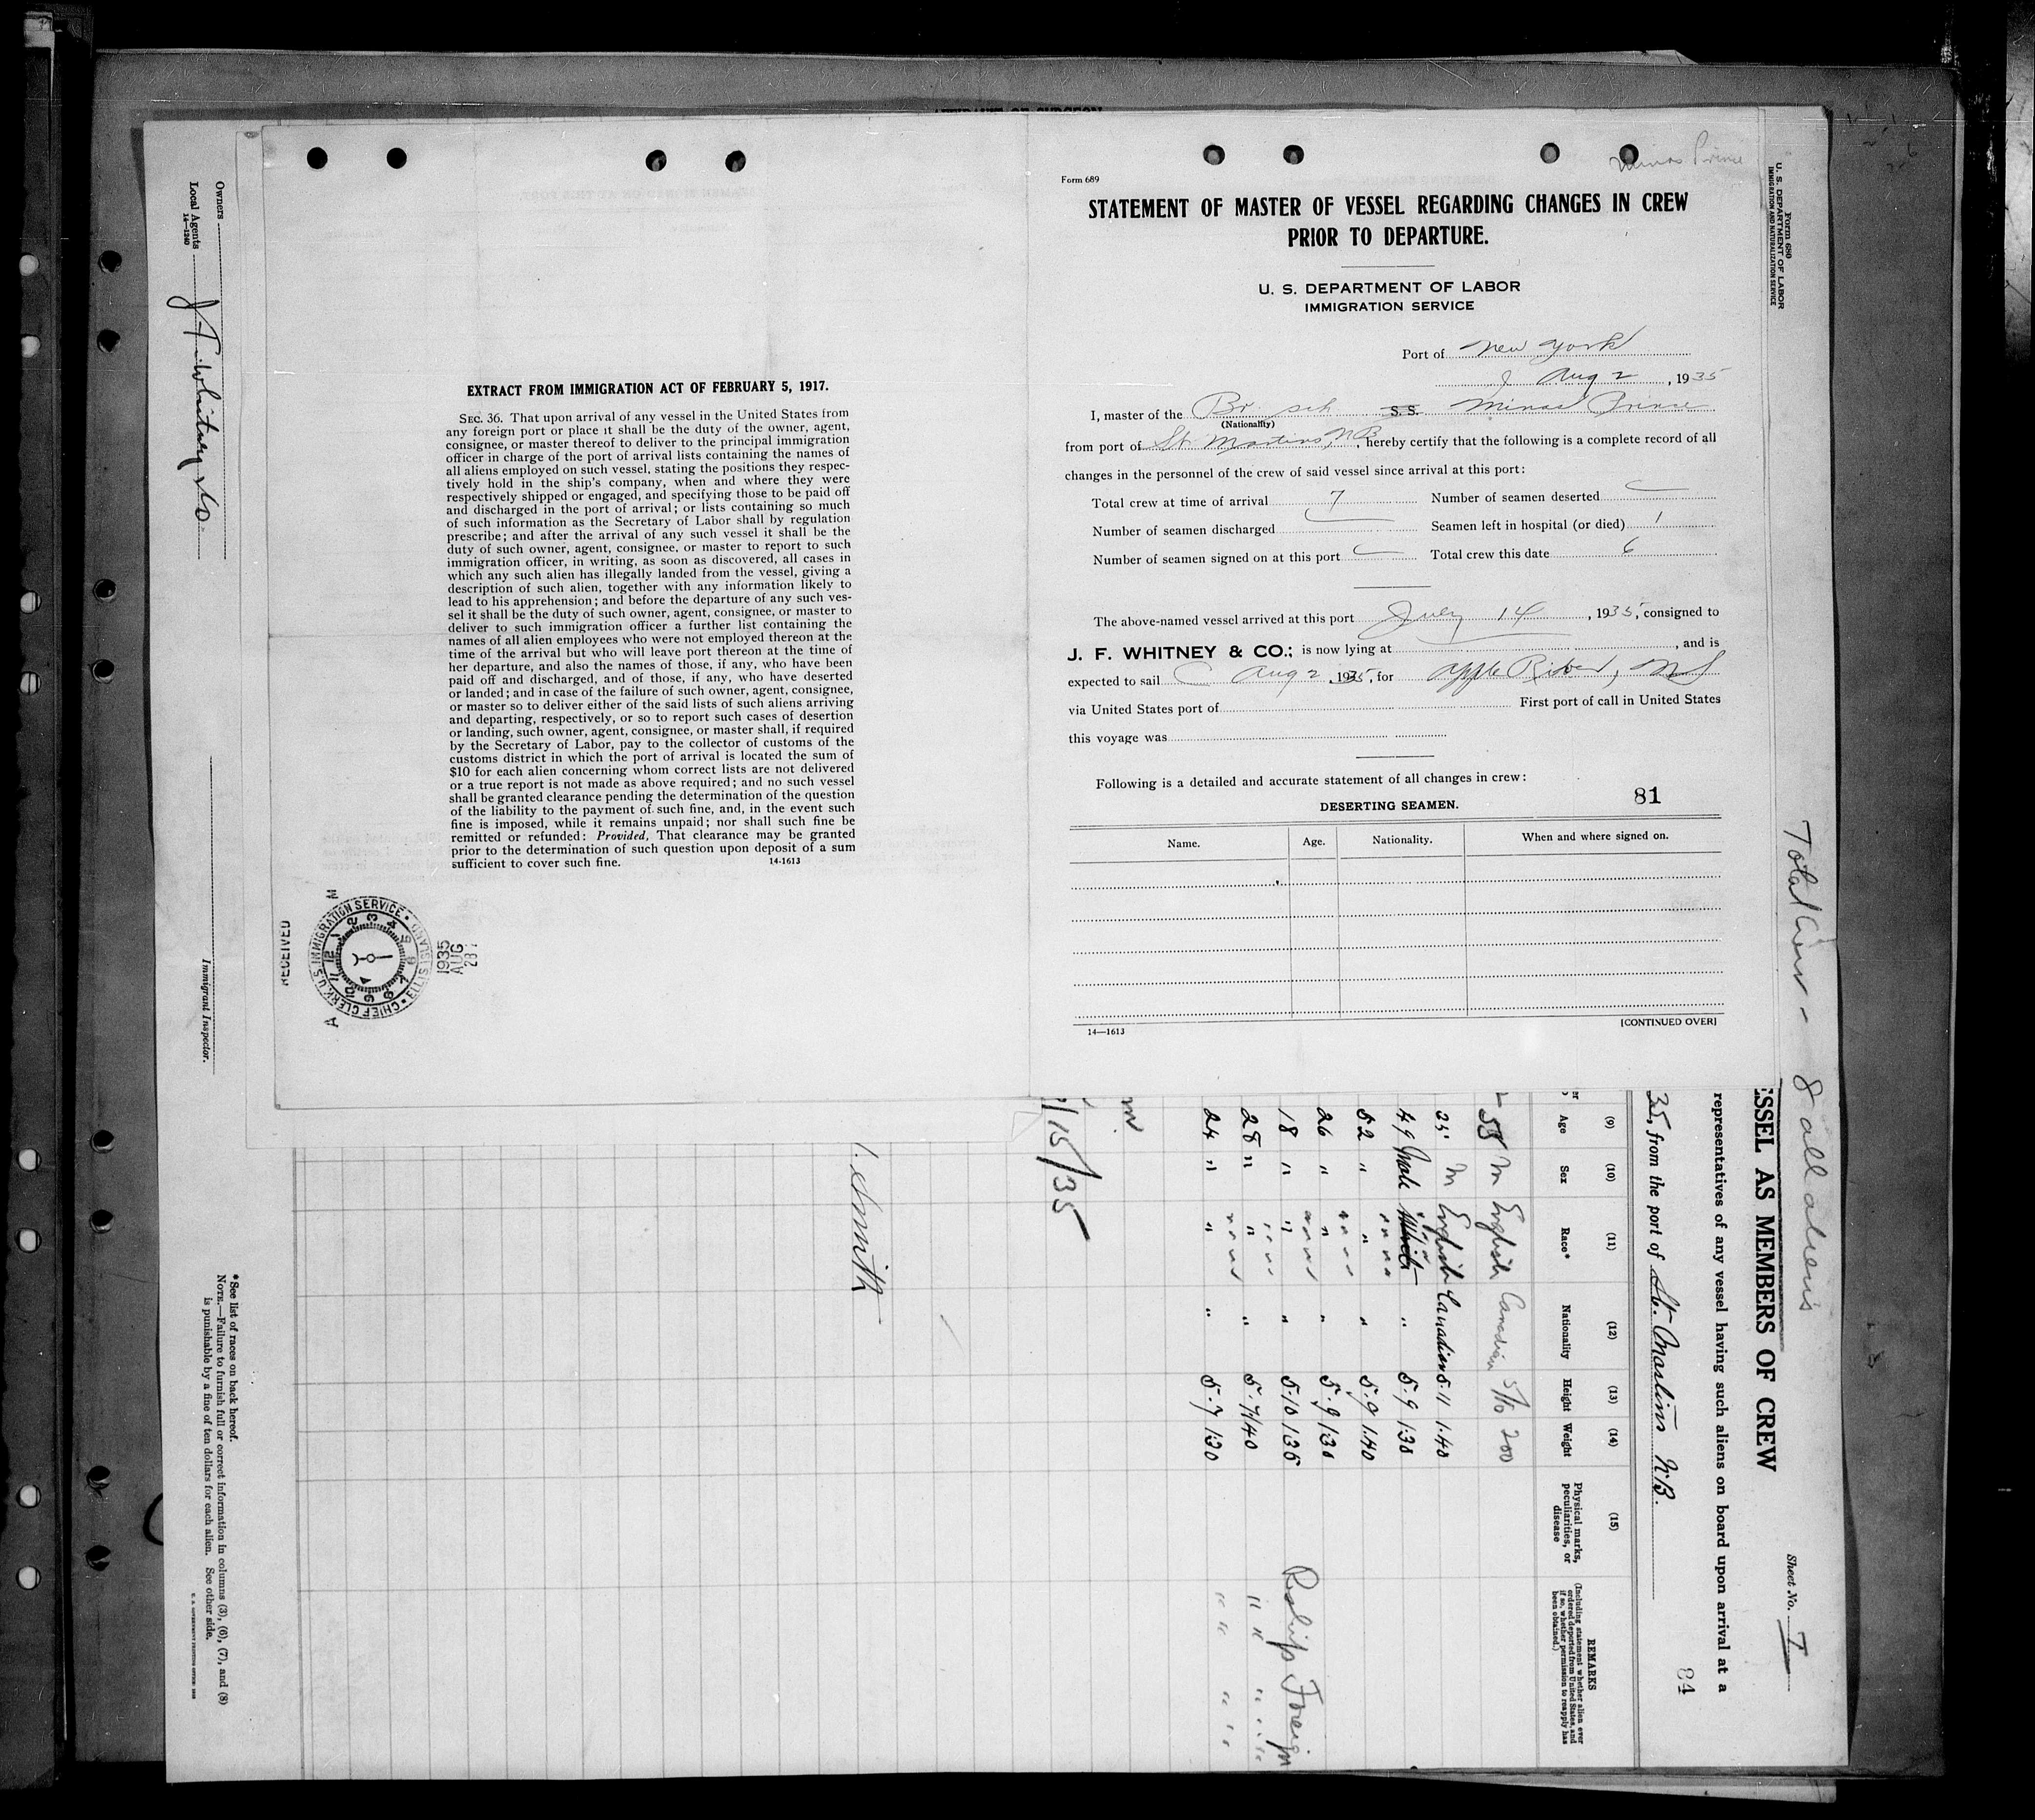 AFFIDAVIT OF SURGEON
Minas Prince
Form 689
STATEMENT OF MASTER OF VESSEL REGARDING CHANGES IN CREW
PRIOR TO DEPARTURE.
U. S. DEPARTMENT OF LABOR
IMMIGRATION SERVICE
Port of New York
Aug 2, 1935
I, master of the Br sch S. S. Minas Prince
(Nationality)
from port of St Martins, NB, hereby certify that the following is a complete record of all
changes in the personnel of the crew of said vessel since arrival at this port:
Total crew at time of arrival 7 Number of seamen deserted
Number of seamen discharged Seamen left in hospital (or died) 1
Number of seamen signed on at this port Total crew this date 6
The above-named vessel arrived at this port July 14, 1935, consigned to
J. F. WHITNEY & CO.; is now lying at , and is
expected to sail Aug 2, 1935, for Apple River, NS
via United States port of First port of call in United States
this voyage was
Following is a detailed and accurate statement of all changes in crew:
81
DESERTING SEAMEN.
Name. Age. Nationality. When and where signed on.
14—1613 [CONTINUED OVER]
EXTRACT FROM IMMIGRATION ACT OF FEBRUARY 5, 1917.
SEC. 36. That upon arrival of any vessel in the United States from
any foreign port or place it shall be the duty of the owner, agent,
consignee, or master thereof to deliver to the principal immigration
officer in charge of the port of arrival lists containing the names of
all aliens employed on such vessel, stating the positions they respec-
tively hold in the ship's company, when and where they were
respectively shipped or engaged, and specifying those to be paid off
and discharged in the port of arrival; or lists containing so much
of such information as the Secretary of Labor shall by regulation
prescribe; and after the arrival of any such vessel it shall be the
duty of such owner, agent, consignee, or master to report to such
immigration officer, in writing, as soon as discovered, all cases in
which any such alien has illegally landed from the vessel, giving a
description of such alien, together with any information likely to
lead to his apprehension; and before the departure of any such ves-
sel it shall be the duty of such owner, agent, consignee, or master to
deliver to such immigration officer a further list containing the
names of all alien employees who were not employed thereon at the
time of the arrival but who will leave port thereon at the time of
her departure, and also the names of those, if any, who have been
paid off and discharged, and of those, if any, who have deserted
or landed; and in case of the failure of such owner, agent, consignee,
or master so to deliver either of the said lists of such aliens arriving
and departing, respectively, or so to report such cases of desertion
or landing, such owner, agent, consignee, or master shall, if required
by the Secretary of Labor, pay to the collector of customs of the
customs district in which the port of arrival is located the sum of
$10 for each alien concerning whom correct lists are not delivered
or a true report is not made as above required; and no such vessel
shall be granted clearance pending the determination of the question
of the liability to the payment of such fine, and, in the event such
fine is imposed, while it remains unpaid; nor shall such fine be
remitted or refunded: Provided, That clearance may be granted
prior to the determination of such question upon deposit of a sum
sufficient to cover such fine. 14-1613
RECEIVED
CHIEF CLERK, U.S. IMMIGRATION SERVICE • ELLIS ISLAND •
1935
AUG
Form 680
U. S. DEPARTMENT OF LABOR
IMMIGRATION AND NATURALIZATION SERVICE
Total Crew - 8 all aliens
Sheet No. 1
ESSEL AS MEMBERS OF CREW
representatives of any vessel having such aliens on board upon arrival at a
35, from the port of St. Martins N.B.
84
(9) (10) (11) (12) (13) (14) (15)
Age Sex Race* Nationality Height Weight Physical marks, peculiarities, or disease
REMARKS
(Including statement whether alien ever ordered deported from United States, and if so, whether permission to reapply has been obtained.)
58 M English Canadian 5/10 200
25 M English Canadian 5.11 1.40
49 Male White " 5.9 1.30
52 " " " 5.9 1.40
26 " " " 5.9 130
18 " " " 5.10 135 Reship Foreign
28 " " " 5.7 140 " " " "
24 " " " 5.7 130 " " " "
/15/35
Smith
*See list of races on back hereof.
NOTE.—Failure to furnish full or correct information in columns (3), (6), (7), and (8)
is punishable by a fine of ten dollars for each alien. See other side.
Immigrant Inspector.
Owners
Local Agents J. F. Whitney & Co.
14—1240